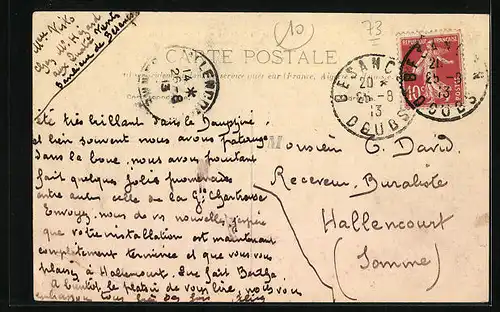 Mme Kiko
chez M. Bégard
aux Quatre Vents
Banlieue de Besançon
10
73
CARTE POSTALE
HALLENCOURT
14 *
26-8
13
BESANÇON
20 *
25-8
13
DOUBS
BESANÇON
20 *
25-8
13
DOUBS
10c
été très brillant dans le Dauphiné
et bien souvent nous avons pataugé
dans la boue, nous avons pourtant
fait quelques jolies promenades
entre autres celle de la Gde Chartreuse
Envoyez-nous de vos nouvelles, j'espère
que votre installation est maintenant
complètement terminée et que vous vous
plaisez à Hallencourt. Que fait
A bientôt le plaisir de vous lire, nous vous
embrassons tous
Monsieur G. David
Receveur Buraliste
Hallencourt
(Somme)